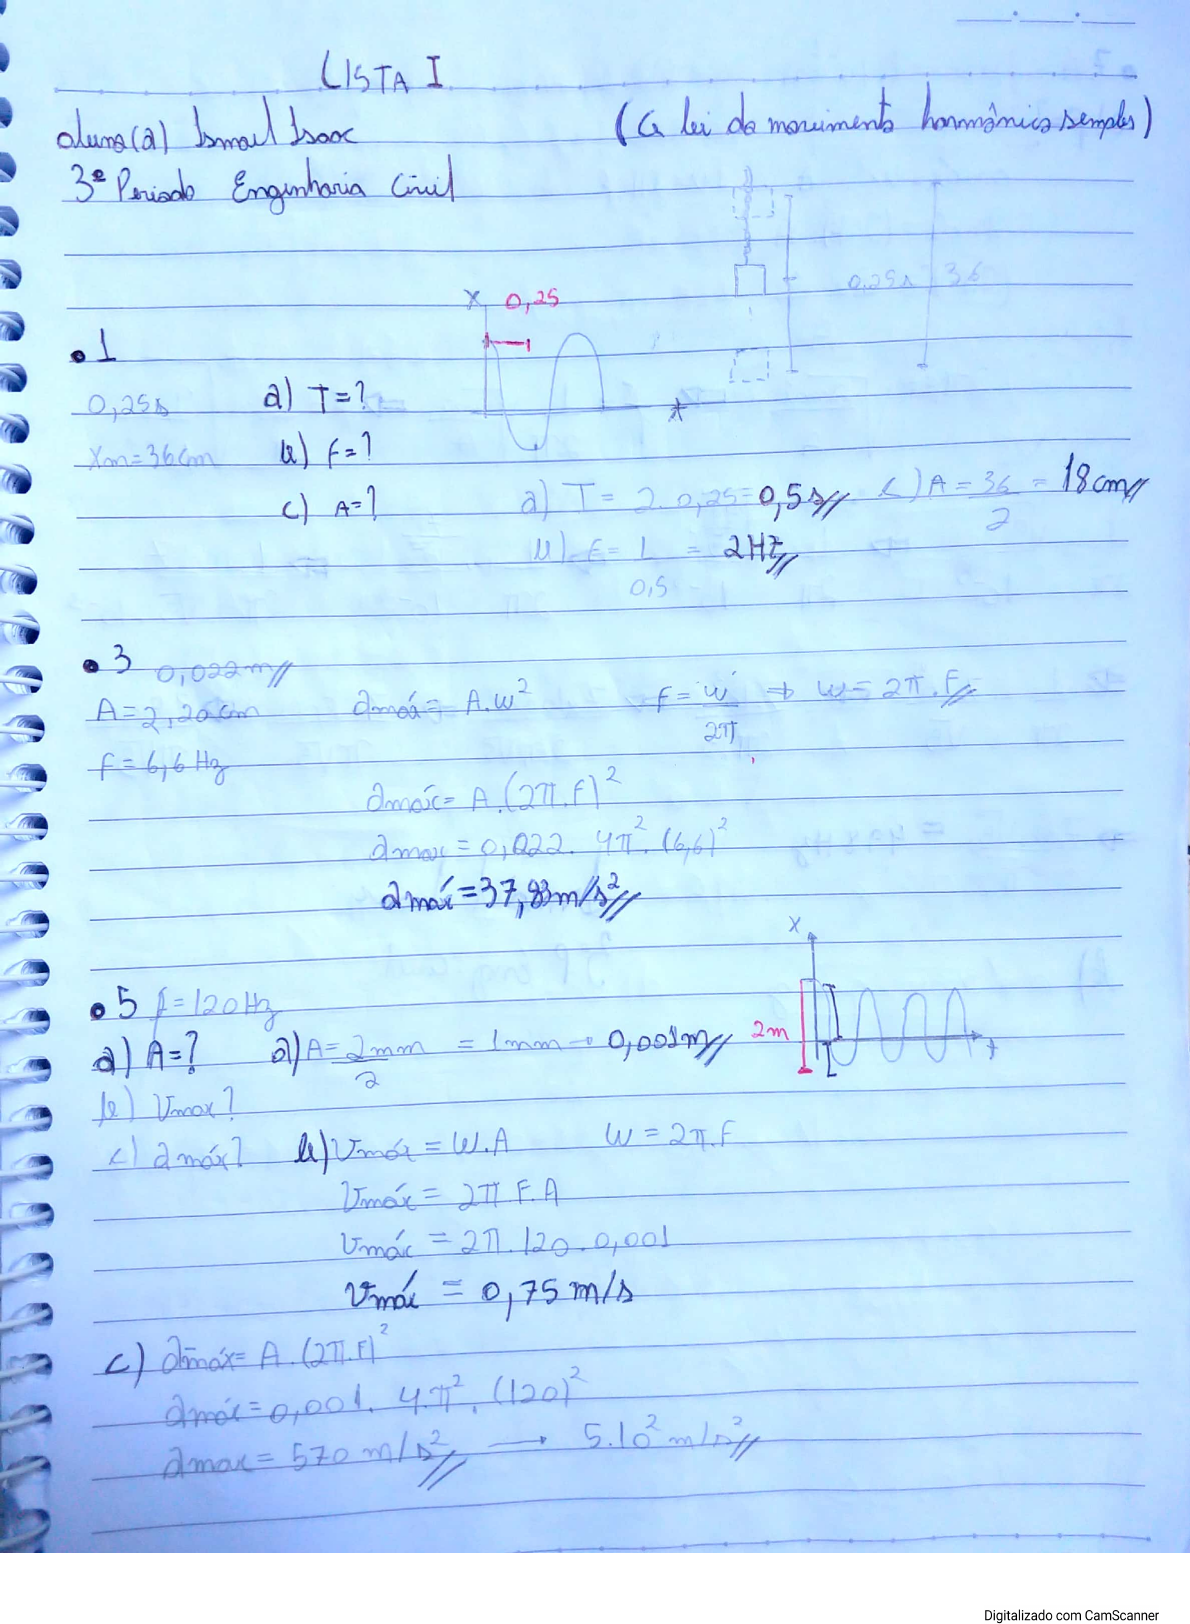 LISTA I
aluno(a) Ismael Isaac (a lei do movimento harmônico simples)
3º Periodo Engenharia Civil
0,25s 36
X 0,25
• 1
0,25s a) T=?
t
Xm=36cm b) f=?
c) A=? a) T = 2.0,25=0,5s// c) A = 36/2 = 18cm//
b) f = 1/0,5 = 2Hz//
• 3 0,022m//
A=2,20cm amáx= A.w² f = w/2π ⇒ w = 2π.f//
f=6,6Hz
amáx= A.(2π.f)²
amax = 0,022. 4π². (6,6)²
amáx=37,83m/s²//
X
• 5 f=120Hz
a) A=? a) A= 2mm/2 = 1mm → 0,001m// 2m
t
b) Vmax?
c) amáx? b) Vmáx = W.A W = 2π.F
Vmáx = 2π F.A
Vmáx = 2π.120.0,001
Vmáx = 0,75 m/s
c) amáx= A.(2π.F)²
amáx=0,001. 4.π². (120)²
amax = 570 m/s²// → 5.10² m/s²//
Digitalizado com CamScanner